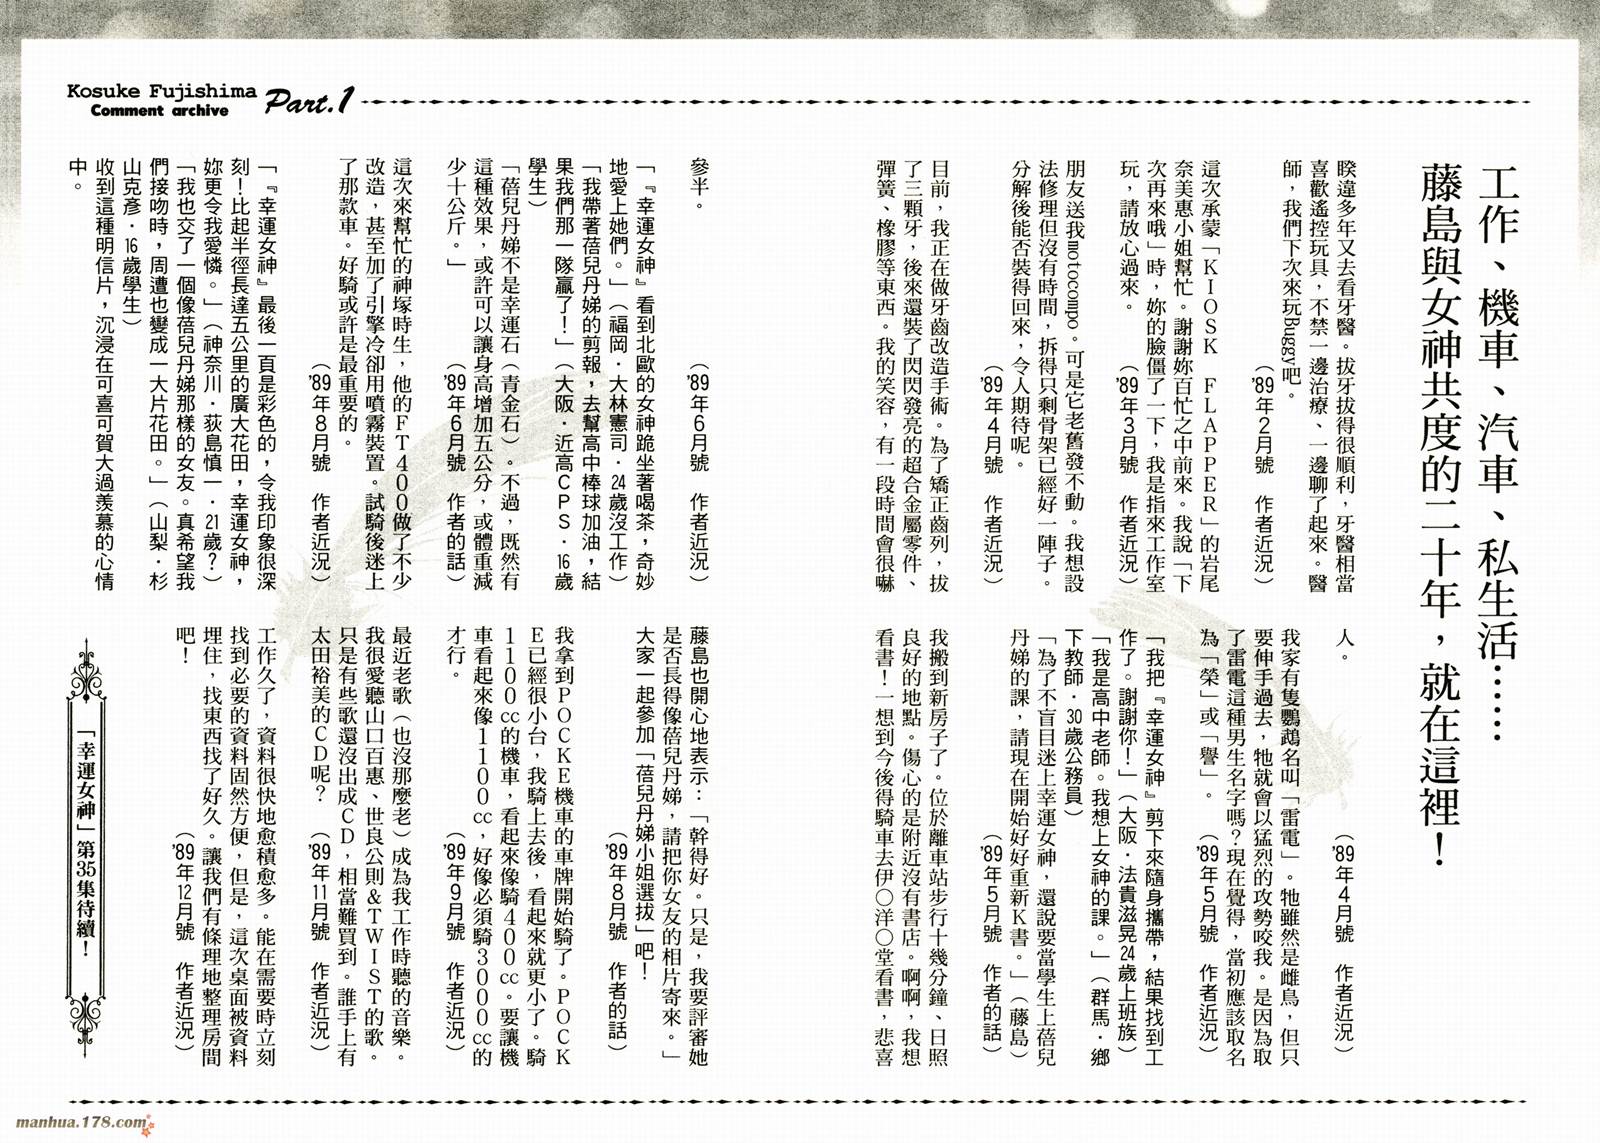 Kosuke Fujishima
Comment archive
Part.1
工作、機車、汽車、私生活……
藤島與女神共度的二十年，就在這裡！
睽違多年又去看牙醫。拔牙拔得很順利，牙醫相當
喜歡遙控玩具，不禁一邊治療、一邊聊了起來。醫
師，我們下次來玩Buggy吧。
（'89年2月號　作者近況）
這次承蒙「KIOSK　FLAPPER」的岩尾
奈美惠小姐幫忙。謝謝妳百忙之中前來。我說「下
次再來哦」時，妳的臉僵了一下，我是指來工作室
玩，請放心過來。
（'89年3月號　作者近況）
朋友送我motocompo。可是它老舊發不動。我想設
法修理但沒有時間，拆得只剩骨架已經好一陣子。
分解後能否裝得回來，令人期待呢。
（'89年4月號　作者近況）
目前，我正在做牙齒改造手術。為了矯正齒列，拔
了三顆牙，後來還裝了閃閃發亮的超合金屬零件、
彈簧、橡膠等東西。我的笑容，有一段時間會很嚇
人。
（'89年4月號　作者近況）
我家有隻鸚鵡名叫「雷電」。牠雖然是雌鳥，但只
要伸手過去，牠就會以猛烈的攻勢咬我。是因為取
了雷電這種男生名字嗎？現在覺得，當初應該取名
為「榮」或「譽」。
（'89年5月號　作者近況）
「我把『幸運女神』剪下來隨身攜帶，結果找到工
作了。謝謝你！」（大阪．法貴滋晃24歲上班族）
「我是高中老師。我想上女神的課。」（群馬．鄉
下教師．30歲公務員）
「為了不盲目迷上幸運女神，還說要當學生上蓓兒
丹娣的課，請現在開始好好重新K書。」（藤島）
（'89年5月號　作者的話）
我搬到新房子了。位於離車站步行十幾分鐘、日照
良好的地點。傷心的是附近沒有書店。啊啊，我想
看書！一想到今後得騎車去伊○洋○堂看書，悲喜
參半。
（'89年6月號　作者近況）
「『幸運女神』看到北歐的女神跪坐著喝茶，奇妙
地愛上她們。」（福岡．大林憲司．24歲沒工作）
「我帶著蓓兒丹娣的剪報，去幫高中棒球加油，結
果我們那一隊贏了！」（大阪．近高CPS．16歲
學生）
「蓓兒丹娣不是幸運石（青金石）。不過，既然有
這種效果，或許可以讓身高增加五公分，或體重減
少十公斤。」
（'89年6月號　作者的話）
這次來幫忙的神塚時生，他的FT400做了不少
改造，甚至加了引擎冷卻用噴霧裝置。試騎後迷上
了那款車。好騎或許是最重要的。
（'89年8月號　作者近況）
「『幸運女神』最後一頁是彩色的，令我印象很深
刻！比起半徑長達五公里的廣大花田，幸運女神，
妳更令我愛憐。」（神奈川．荻島慎一．21歲？）
「我也交了一個像蓓兒丹娣那樣的女友。真希望我
們接吻時，周遭也變成一大片花田。」（山梨．杉
山克彥．16歲學生）
收到這種明信片，沉浸在可喜可賀大過羨慕的心情
中。
藤島也開心地表示：「幹得好。只是，我要評審她
是否長得像蓓兒丹娣，請把你女友的相片寄來。」
大家一起參加「蓓兒丹娣小姐選拔」吧！
（'89年8月號　作者的話）
我拿到POCKE機車的車牌開始騎了。POCK
E已經很小台，我騎上去後，看起來就更小了。騎
1100cc的機車，看起來像騎400cc。要讓機
車看起來像1100cc，好像必須騎3000cc的
才行。
（'89年9月號　作者近況）
最近老歌（也沒那麼老）成為我工作時聽的音樂。
我很愛聽山口百惠、世良公則&TWIST的歌。
只是有些歌還沒出成CD，相當難買到。誰手上有
太田裕美的CD呢？
（'89年11月號　作者近況）
工作久了，資料很快地愈積愈多。能在需要時立刻
找到必要的資料固然方便，但是，這次桌面被資料
埋住，找東西找了好久。讓我們有條理地整理房間
吧！
（'89年12月號　作者近況）
「幸運女神」第35集待續！
manhua.178.com